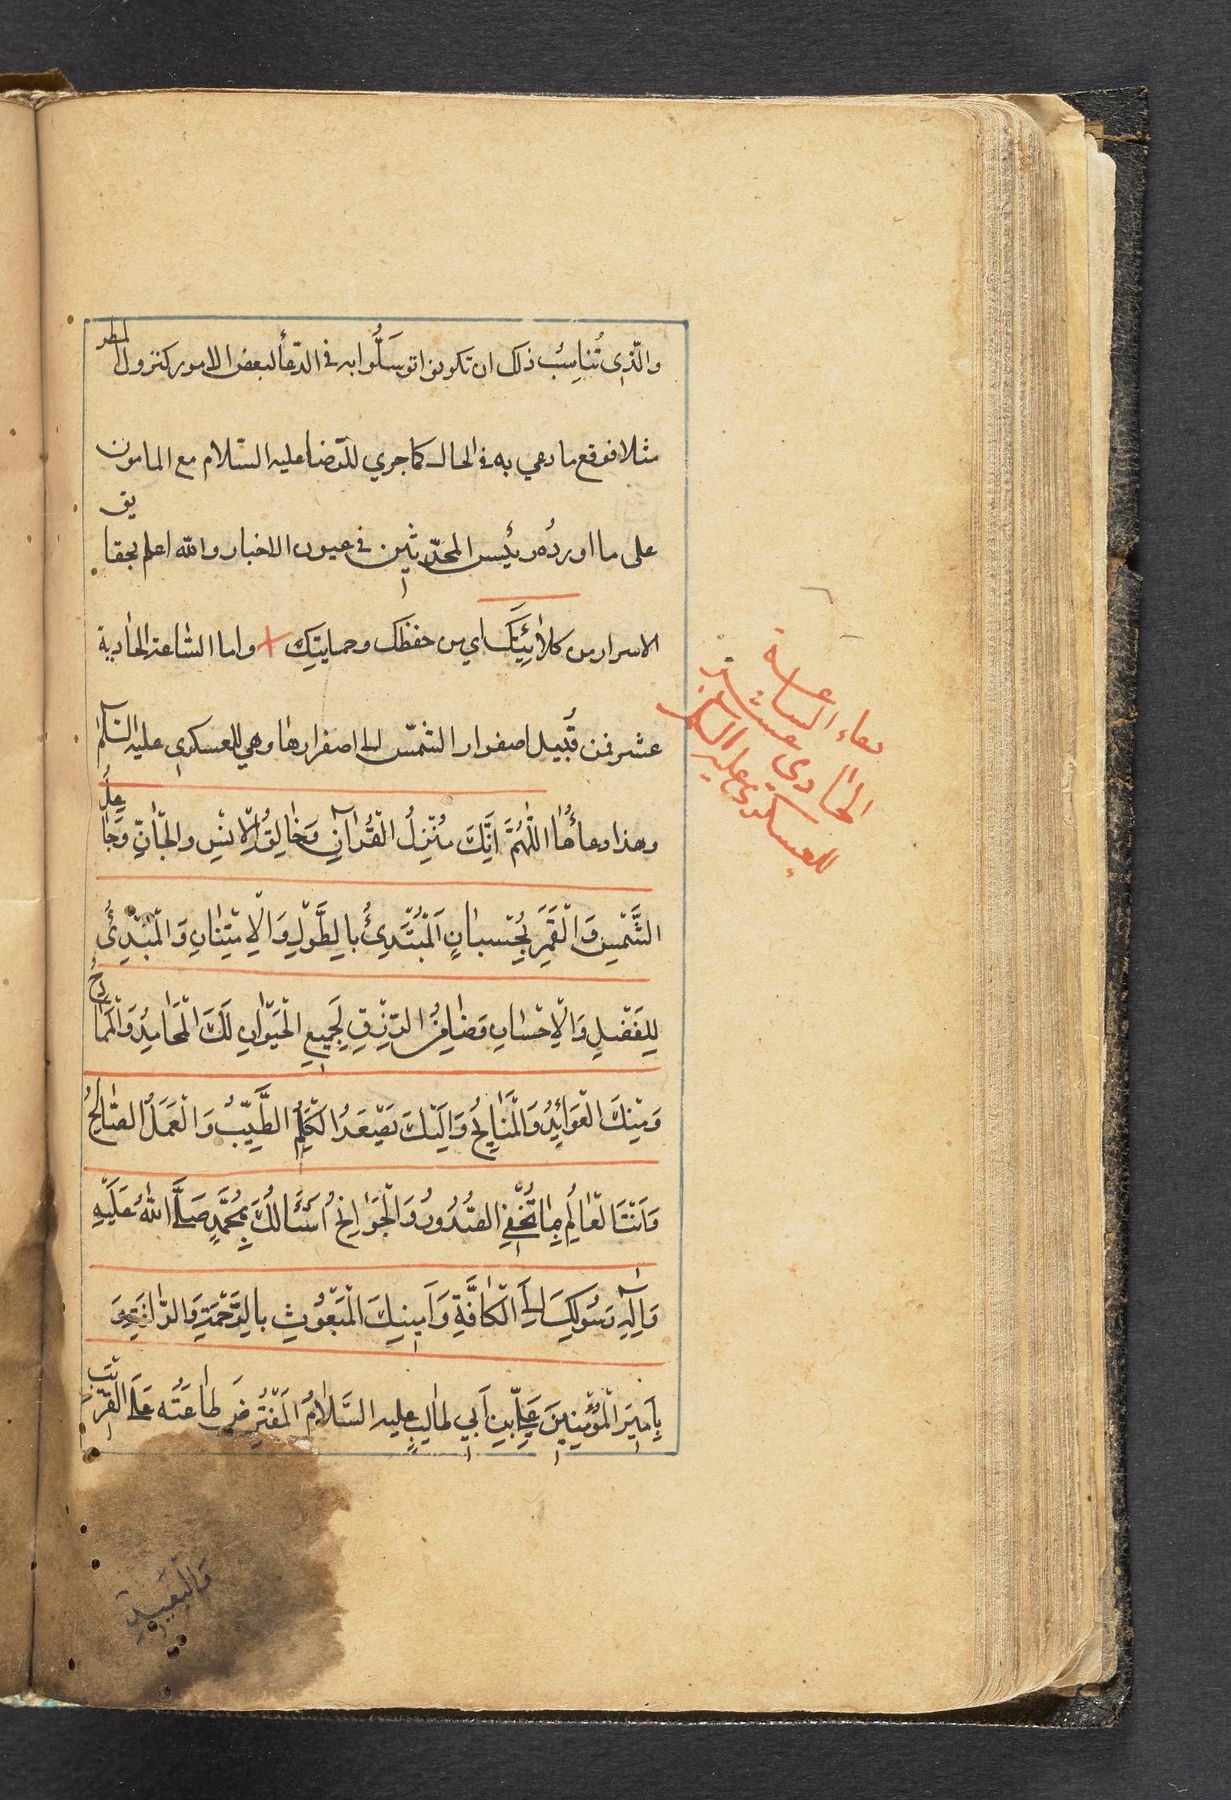 والّذى تُناسِبُ ذلك ان تكونوا توسَلُّوا به فى الدّعأ لبعض الامور كنزول المطر
مثلا فوقع ما دعي به فى الحال كما جري للرّضا عليه السّلام مع المامون
على ما اورده رئيس المحدّثين فى عيون الاخبار والله اعلم بحقايق
الاسرار من كلائتِكَ اي من حفظك وحمايتِك واما السّاعة الحادية
عشر فمن قُبيل اصفرار الشمسّ الى اصفرارها وهي للعسكرى عليه السّلام
وهذا دعاؤُها اللّٰهُمَّ اِنَّكَ مُنْزِلُ الْقُرْآنِ وَخالِقُ الْاِنْسِ والْجانِّ وَجاعِلُ
الشَّمْسِ وَالْقَمَرِ بِحُسْبانٍ اَلْمُبْتَدِئُ بِالطَّوْلِ وَالْاِمْتِنانِ وَالْمُبْدِئُ
لِلفَضْلِ وَالْاِحْسانِ وضامِنُ الرِّزْقِ لِجَميعِ الْحَيَوانِ لَكَ الْمَحامِدُ وَالْمَمادِحُ
وَمِنْكَ الْعَوائِدُ وَالْمَنايِحُ وَاِلَيْكَ يَصْعَدُ الْكَلِمُ الطَّيِّبُ وَالْعَمَلُ الصّالِحُ
وَاَنْتَ الْعالِمُ بِما تُخْفِي الصُّدُورُ وَالْجَوانِحُ اَسْئَالُكَ بِمُحَمَّدٍ صَلَّى اللهُ عَلَيْهِ
وَآلِهِ رَسُولِكَ اِلَى الْكافَّةِ وَاَمينِكَ الْمَبْعُوثِ بِالرَّحْمَةِ وَالرَّافَةِ وَ
بِاَميرَ الْمُؤْمِنينَ عَلِيِّ بْنِ اَبي طالِبٍ عليه السَّلامُ الْمُفْتَرَضِ طاعَتُه عَلَى الْقَريبِ
وَالْبَعيدِ
دعاء الساعة
الحادي عشر
للعسكري عليه السلام